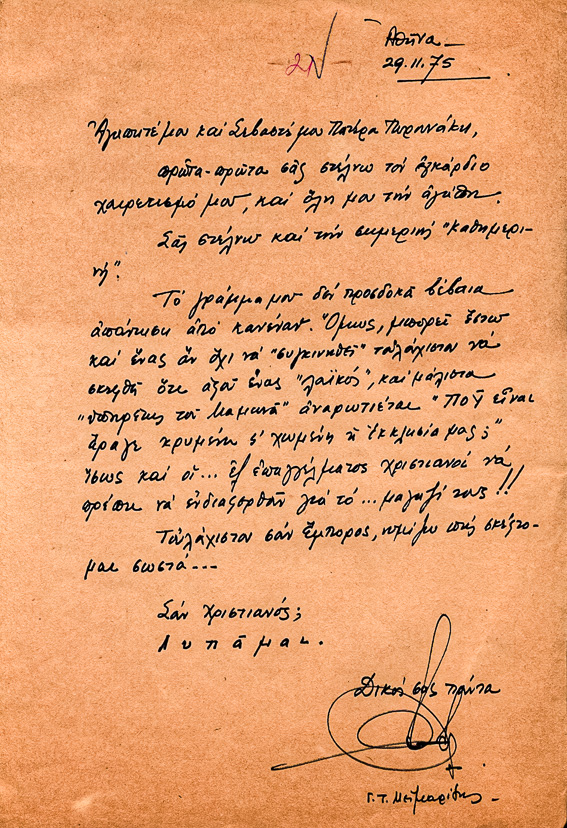 21
Ἀθήνα –
29.11.75
Ἀγαπητέ μου καὶ Σεβαστέ μου Πατέρα Πυρουνάκη,
πρῶτα-πρῶτα σᾶς στέλνω τὸν ἐγκάρδιο
χαιρετισμό μου, καὶ ὅλη μου τὴν ἀγάπη.
Σᾶς στέλνω καὶ τὴν σημερινὴ "καθημερι-
νή".
Τὸ γράμμα μου δὲν προσδοκᾶ βέβαια
ἀπάντηση ἀπὸ κανέναν. Ὅμως, μπορεῖ ἔστω
καὶ ἕνας ἂν ὄχι νὰ "συγκινηθεῖ" τοὐλάχιστον νὰ
σκεφθῆ ὅτι ἀφοῦ ἕνας "λαϊκός", καὶ μάλιστα
"ὑπηρέτης τοῦ Μαμωνᾶ" ἀναρωτιέται "Ποῦ εἶναι
ἆραγε κρυμένη ἢ χωμένη ἡ Ἐκκλησία μας;"
ἴσως καὶ οἱ... ἐξ ἐπαγγέλματος χριστιανοὶ νὰ
πρέπει νὰ ἐνδιαφερθοῦν γιὰ τὸ... μαγαζί τους!!
Τοὐλάχιστον σὰν ἔμπορος, νομίζω πὼς σκέφτο-
μαι σωστά...
Σὰν χριστιανός;
Λυπᾶμαι.
Δικός σας πάντα
Γ.Τ. Μεϊμαρίδης –